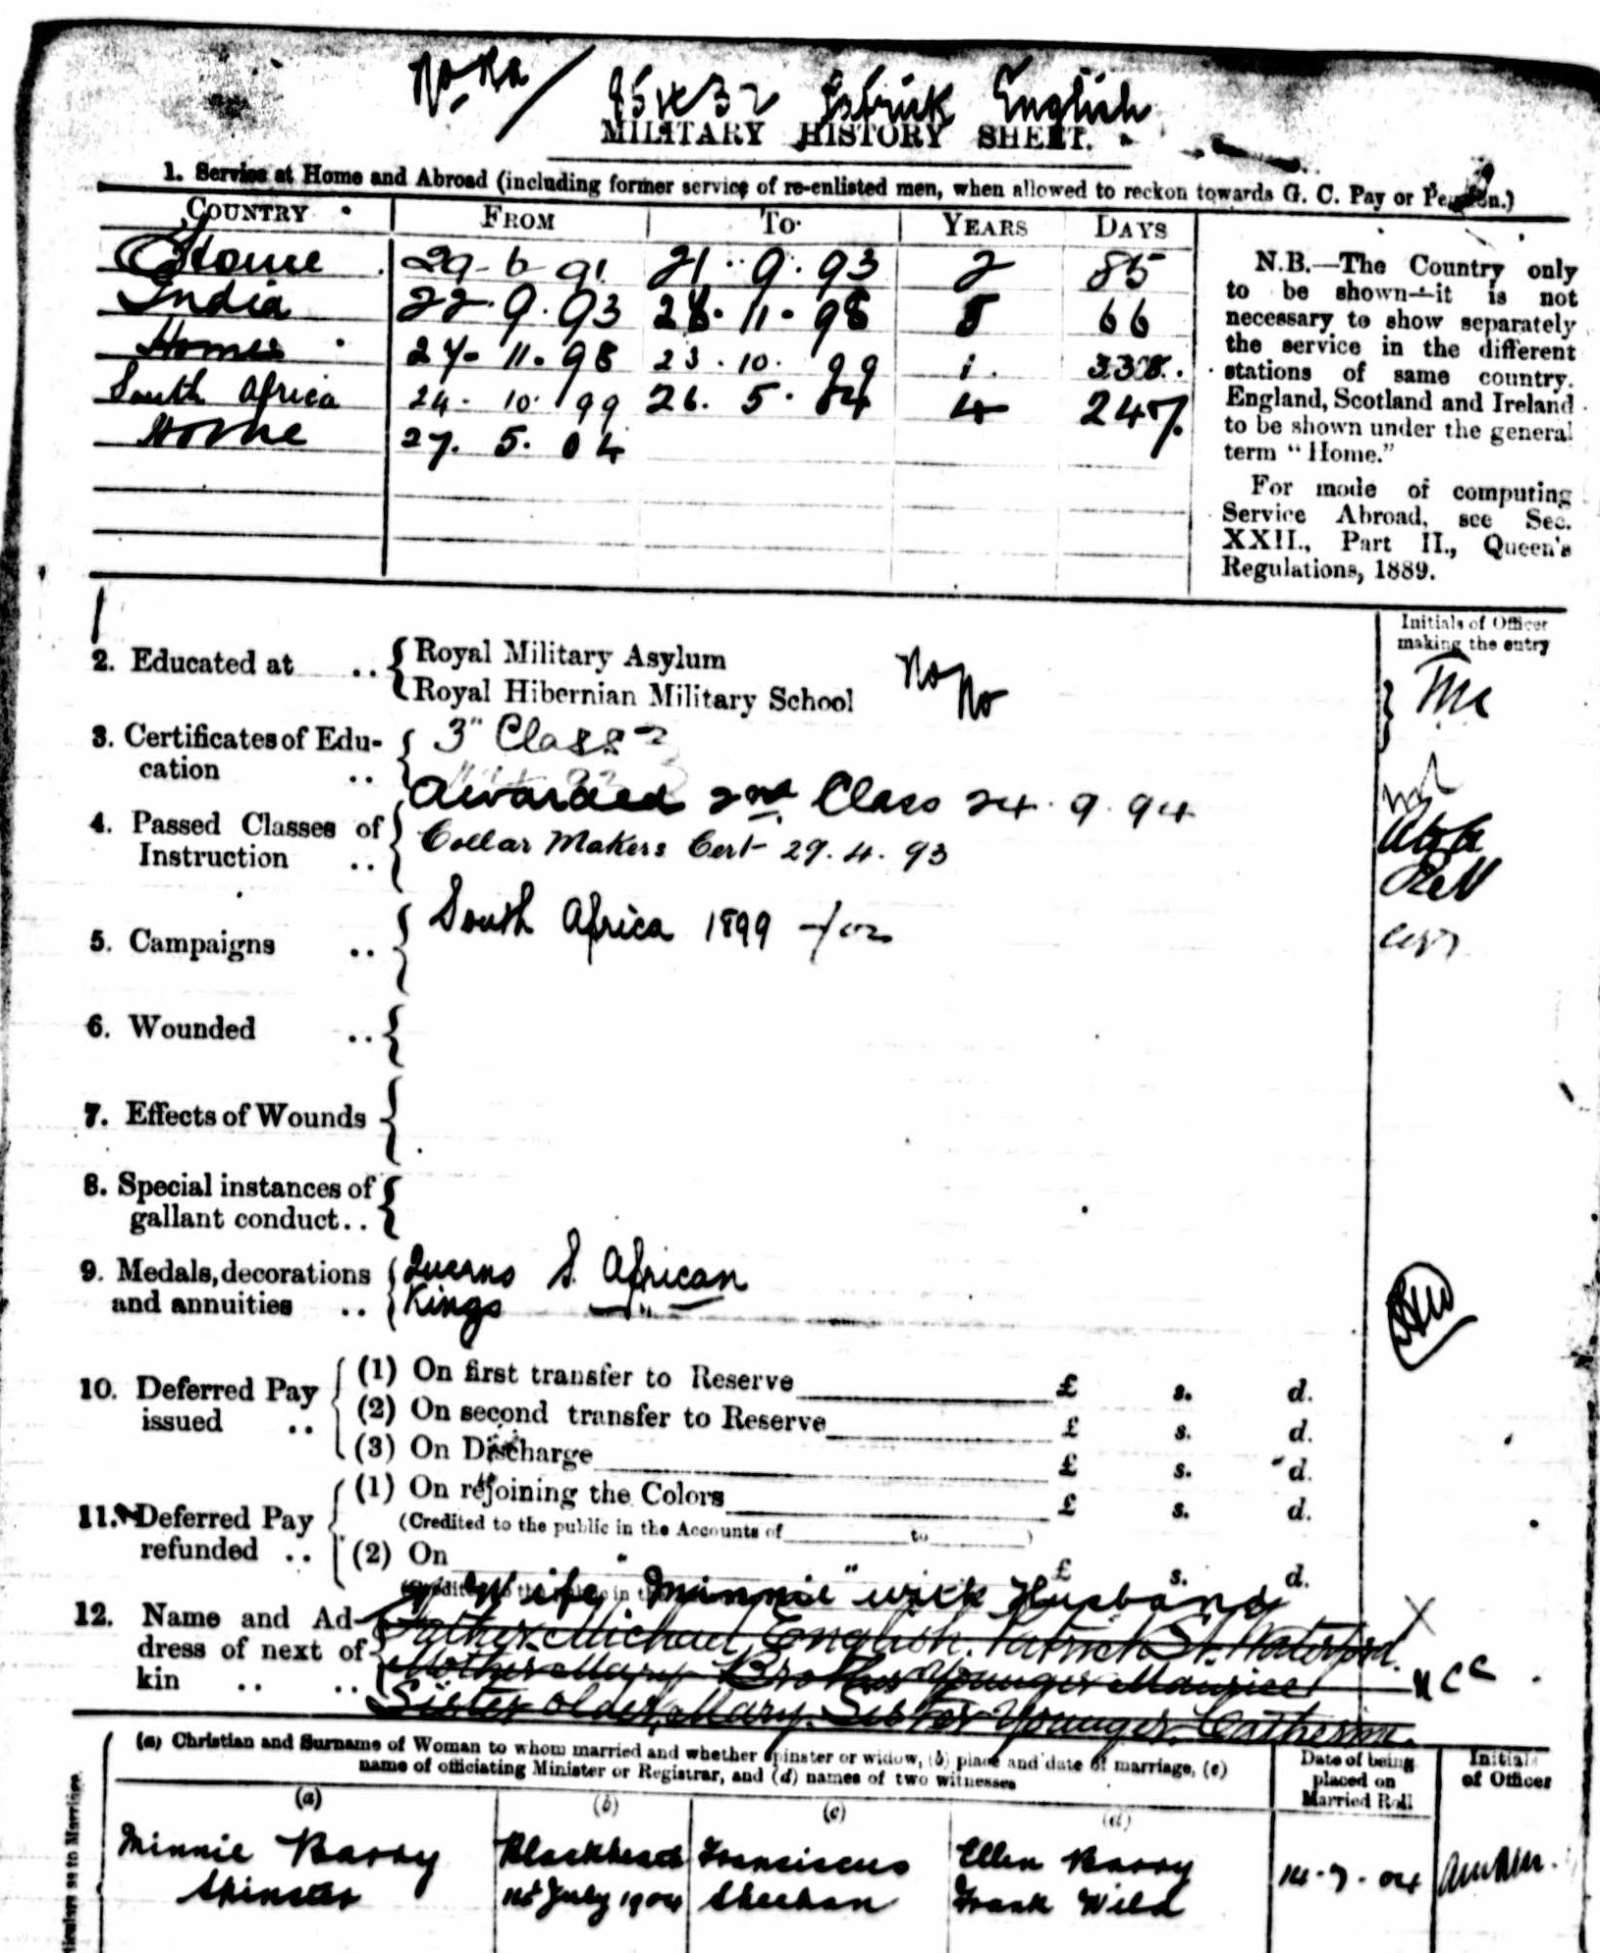 Patrick English
MILITARY HISTORY SHEET.
1. Service at Home and Abroad (including former service of re-enlisted men, when allowed to reckon towards G. C. Pay or Pension.)
COUNTRY FROM To YEARS DAYS
Home 29-6-91 21.9.93 2 85
India 22.9.93 26.11.98 5 66
Home 27.11.98 23.10.99 1.
South Africa 24.10.99 26.5.04 4 247.
Home 27.5.04
N.B.—The Country only
to be shown—it is not
necessary to show separately
the service in the different
stations of same country.
England, Scotland and Ireland
to be shown under the general
term "Home."
For mode of computing
Service Abroad, see Sec.
XXII., Part II., Queen's
Regulations, 1889.
Initials of Officer
making the entry
2. Educated at .. Royal Military Asylum No
Royal Hibernian Military School No
3. Certificates of Edu-
cation ..
3" Class
Awarded 2nd Class 24.9.94
4. Passed Classes of
Instruction ..
Collar Makers Cert 29.4.93
5. Campaigns .. South Africa 1899
6. Wounded ..
7. Effects of Wounds
8. Special instances of
gallant conduct..
9. Medals, decorations
and annuities ..
Queens S. African
Kings "
10. Deferred Pay
issued ..
(1) On first transfer to Reserve £ s. d.
(2) On second transfer to Reserve £ s. d.
(3) On Discharge £ s. d.
11. Deferred Pay
refunded ..
(1) On rejoining the Colors £ s. d.
(Credited to the public in the Accounts of to )
(2) On " £ s. d.
Wife "Minnie" with Husband
12. Name and Ad-
dress of next of
kin .. ..
Father Michael English. Patrick St. Waterford.
Mother Mary Brother Younger Maurice
Sister older, Mary. Sister Younger. Catherine.
(a) Christian and Surname of Woman to whom married and whether spinster or widow, (b) place and date of marriage, (c)
name of officiating Minister or Registrar, and (d) names of two witnesses
Date of being
placed on
Married Roll
Initials
of Officer
(a) (b) (c) (d)
Minnie Barry Blackheath Franciscus Ellen Barry 14-7-04
Spinster 1st July 1904 Sheehan Frank Wild
Particulars as to Marriage.